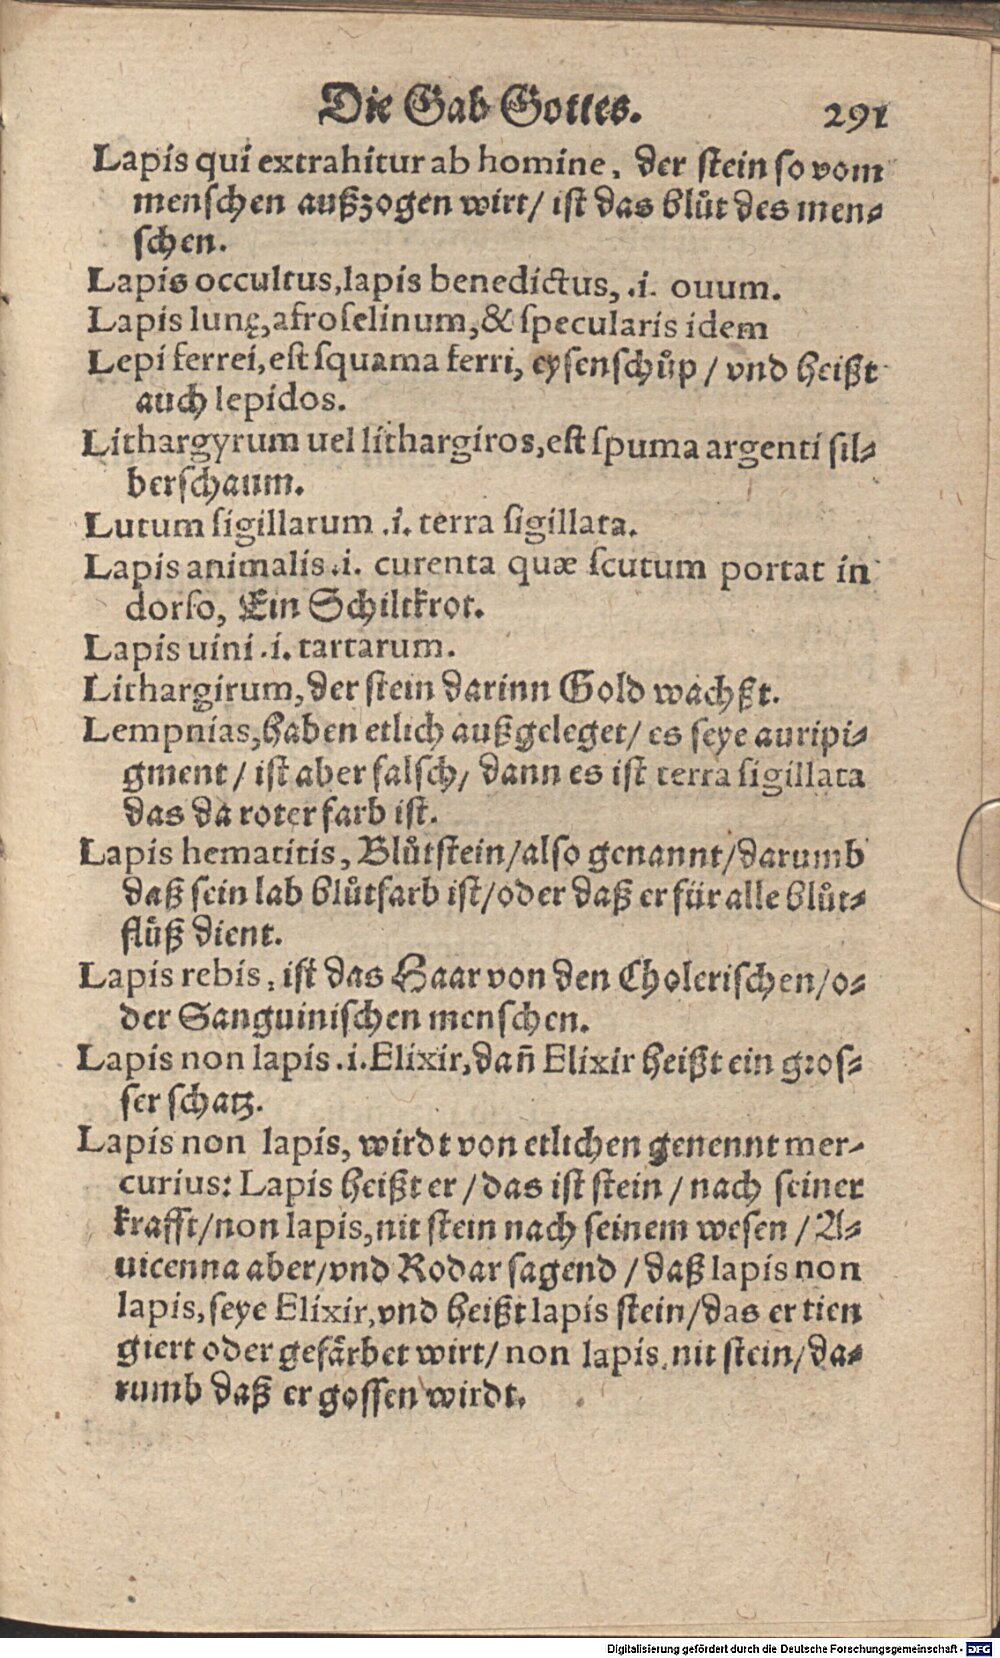 Die Gab Gottes. 291
Lapis qui extrahitur ab homine, der stein so vom
menschen außzogen wirt/ ist das blůt des men⸗
schen.
Lapis occultus, lapis benedictus, .i. ouum.
Lapis lunę, afroselinum, & specularis idem
Lepi ferrei, est squama ferri, eysenschůp / vnd heißt
auch lepidos.
Lithargyrum uel lithargiros, est spuma argenti sil⸗
berschaum.
Lutum sigillatum .i. terra sigillata.
Lapis animalis .i. curenta quæ scutum portat in
dorso, Ein Schiltkrot.
Lapis uini .i. tartarum.
Lithargirum, der stein darinn Gold wachßt.
Lempnias, haben etlich außgeleget/ es seye auripi⸗
gment / ist aber falsch/ dann es ist terra sigillata
das da roter farb ist.
Lapis hematitis, Blůtstein/also genannt/darumb
daß sein lab blůtfarb ist/oder daß er für alle blůt⸗
flůß dient.
Lapis rebis, ist das Haar von den Cholerischen/o⸗
der Sanguinischen menschen.
Lapis non lapis .i. Elixir, dañ Elixir heißt ein gros⸗
ser schatz.
Lapis non lapis, wirdt von etlichen genennt mer⸗
curius: Lapis heißt er / das ist stein / nach seiner
krafft/non lapis, nit stein nach seinem wesen / A⸗
uicenna aber/vnd Rodar sagend / daß lapis non
lapis, seye Elixir, vnd heißt lapis stein/das er tien
giert oder gefårbet wirt/ non lapis, nit stein/da⸗
rumb daß er gossen wirdt.
Digitalisierung gefördert durch die Deutsche Forschungsgemeinschaft - DFG